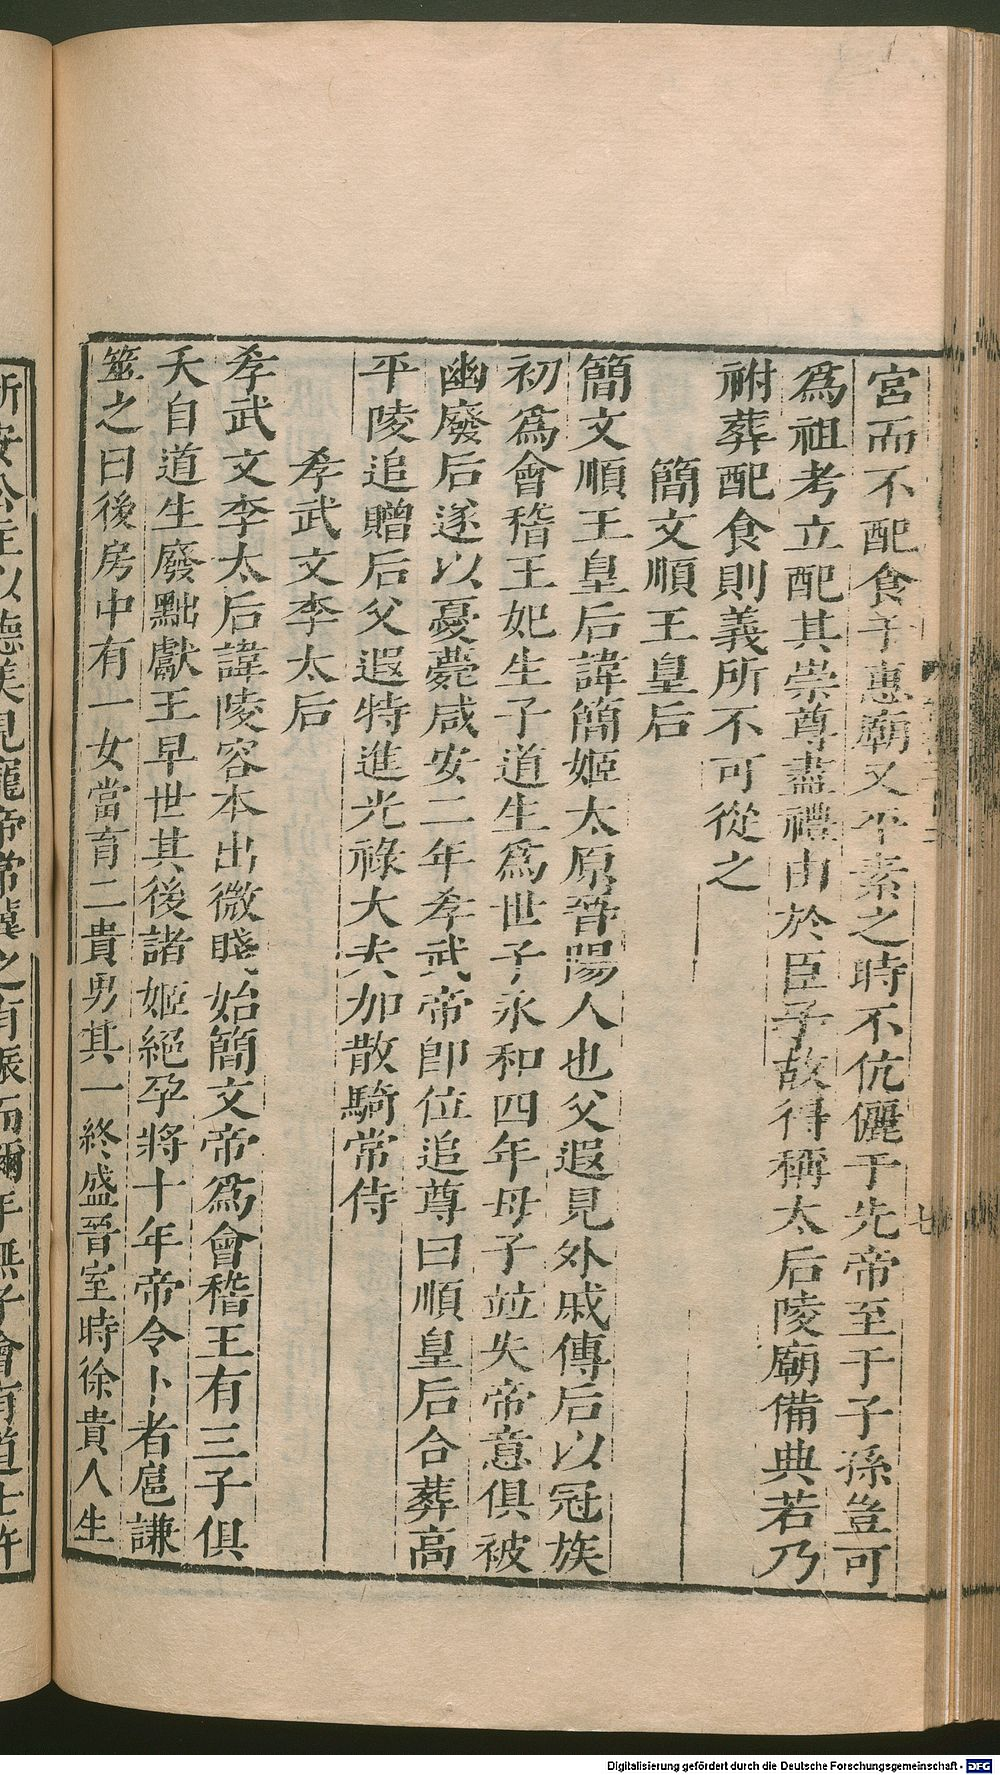 宮而不配食于惠廟又平素之時不伉儷于先帝至于子孫豈可
爲祖考立配其崇尊盡禮由於臣子故得稱太后陵廟備典若乃
祔葬配食則義所不可從之
簡文順王皇后
簡文順王皇后諱簡姬太原晉陽人也父遐見外戚傳后以冠族
初爲會稽王妃生子道生爲世子永和四年母子竝失帝意俱被
幽廢后遂以憂薨咸安二年孝武帝卽位追尊曰順皇后合葬高
平陵追贈后父遐特進光祿大夫加散騎常侍
孝武文李太后
孝武文李太后諱陵容本出微賤始簡文帝爲會稽王有三子俱
夭自道生廢黜獻王早世其後諸姬絕孕將十年帝令卜者扈謙
筮之曰後房中有一女當育二貴男其一終盛晉室時徐貴人生
新安公主以德美見寵帝常冀之有娠而彌年無子會有道士許
Digitalisierung gefördert durch die Deutsche Forschungsgemeinschaft - DFG